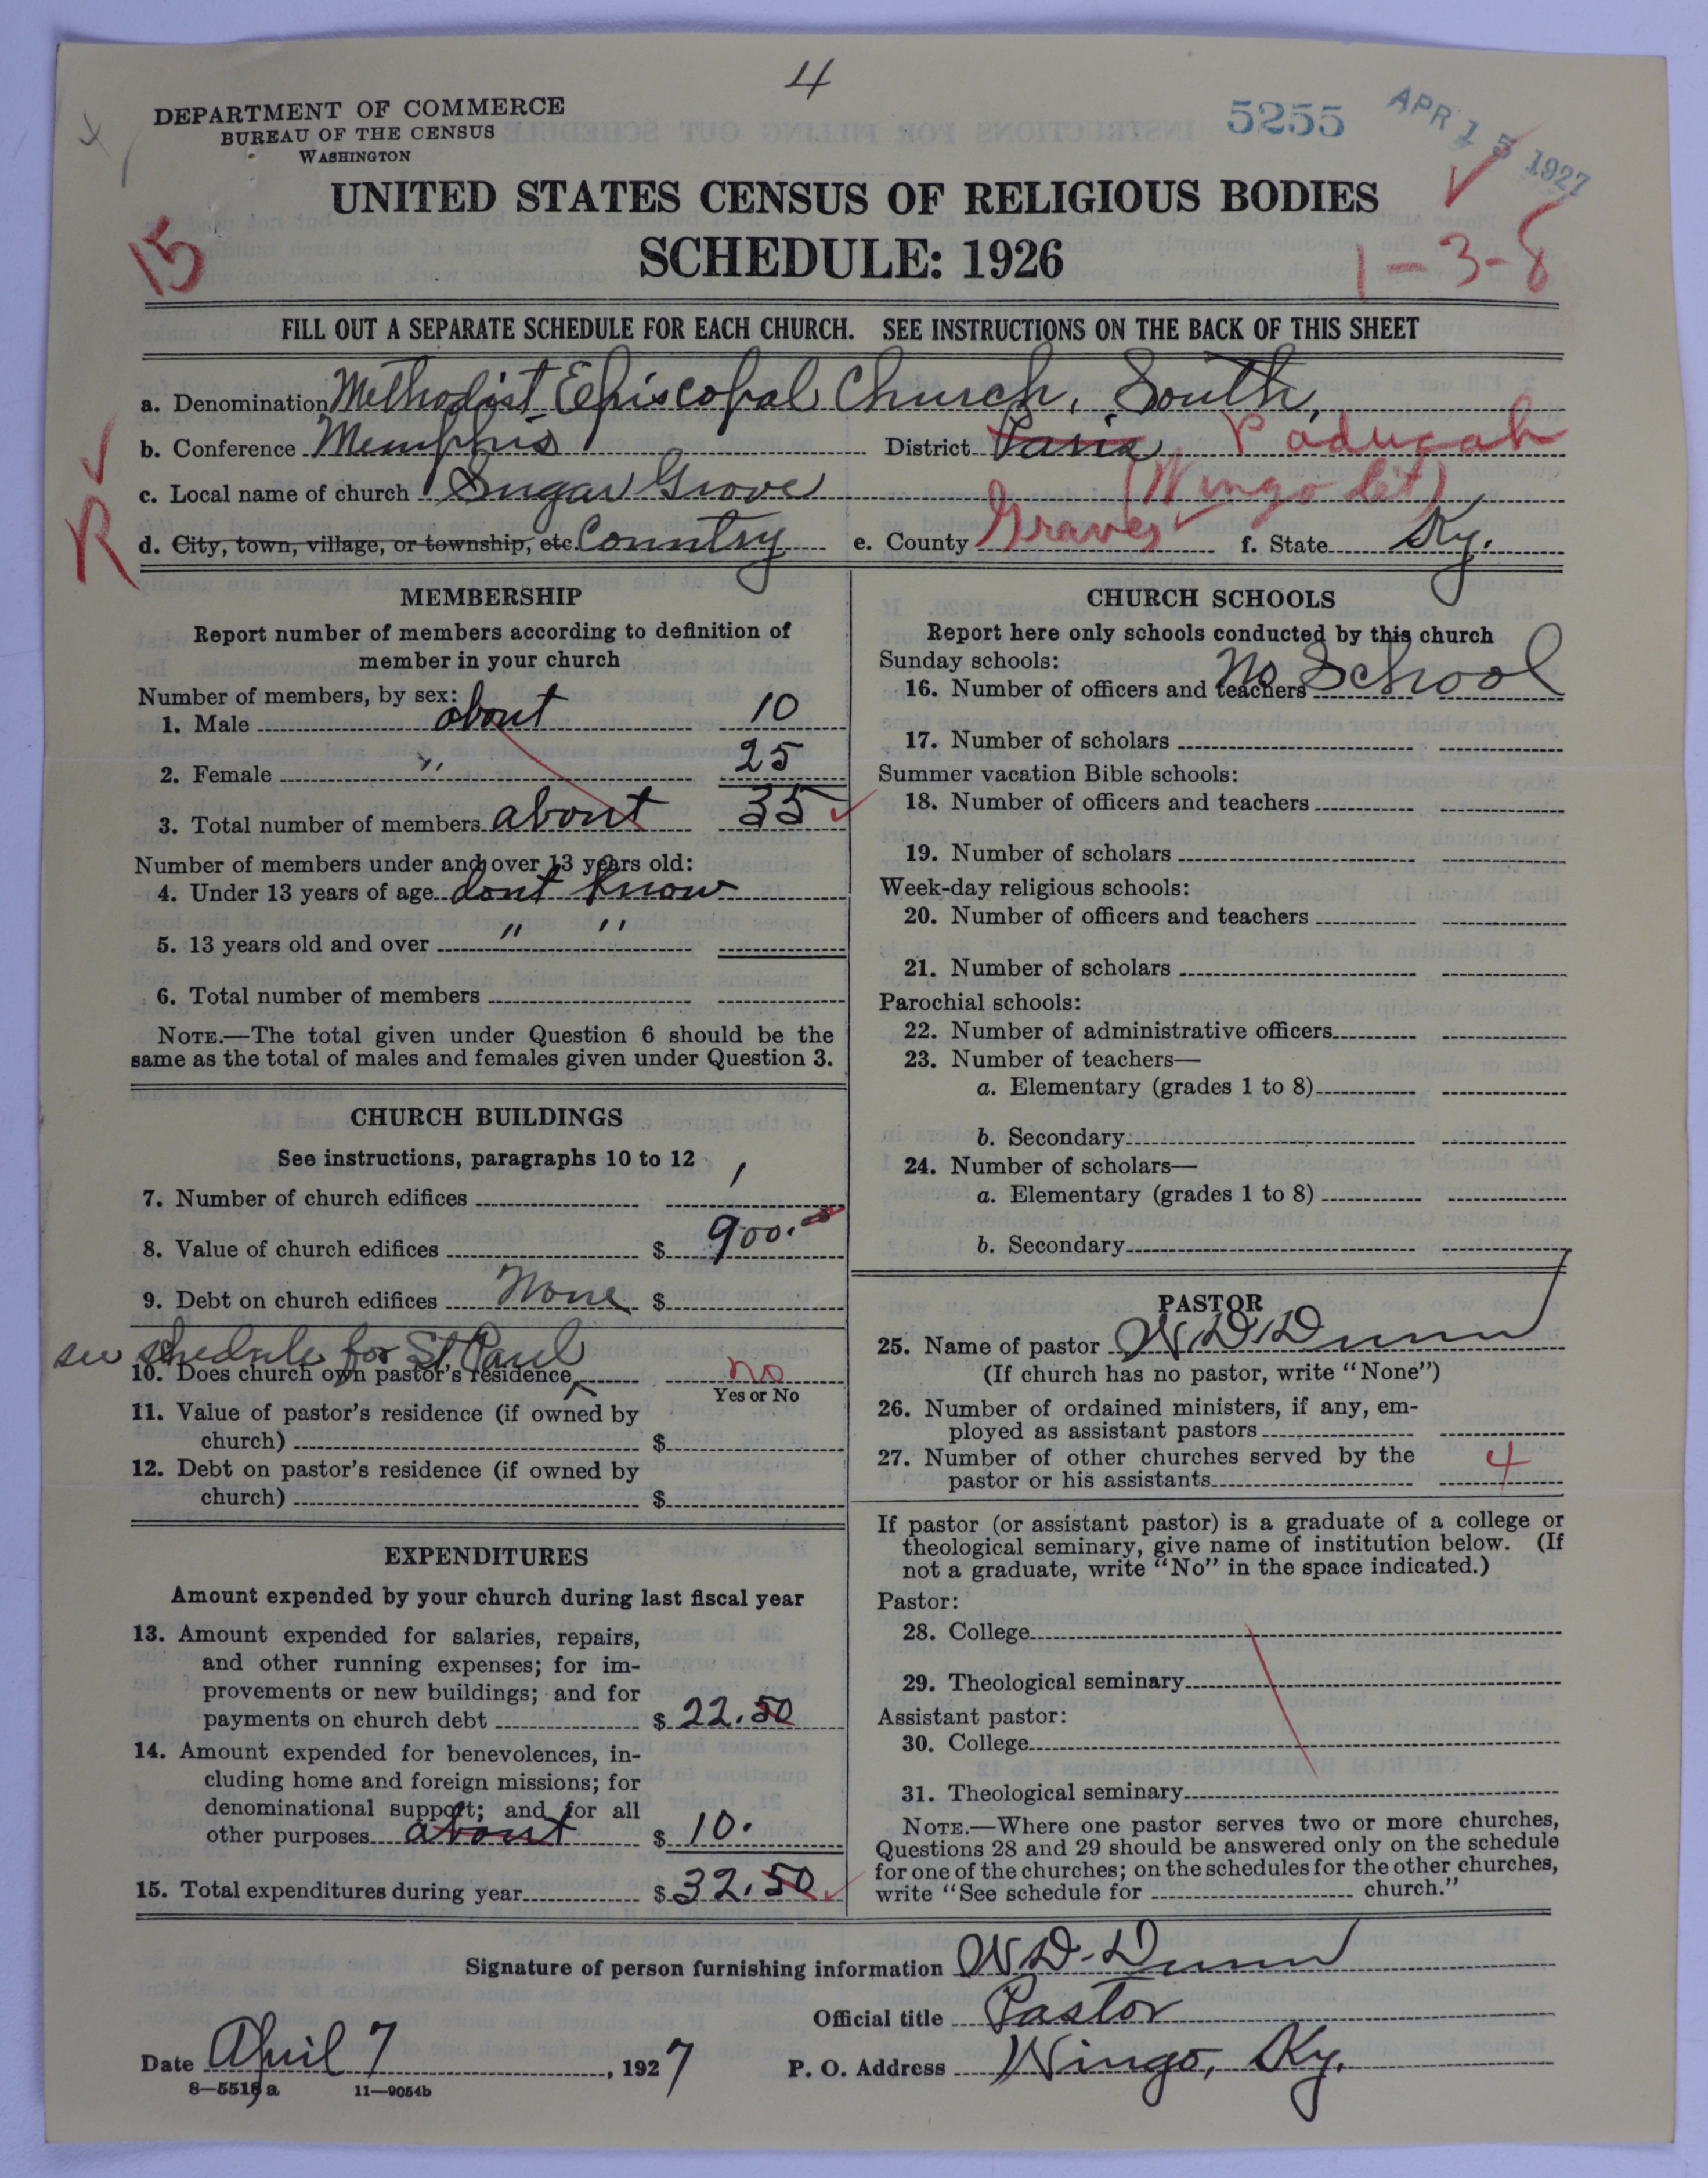 4
DEPARTMENT OF COMMERCE
BUREAU OF THE CENSUS
WASHINGTON
5255
APR 15 1927
UNITED STATES CENSUS OF RELIGIOUS BODIES
SCHEDULE: 1926
15
1-3-8
FILL OUT A SEPARATE SCHEDULE FOR EACH CHURCH. SEE INSTRUCTIONS ON THE BACK OF THIS SHEET
a. Denomination Methodist Episcopal Church, South,
b. Conference Memphis District Paris Paducah
c. Local name of church Sugar Grove (Wingo Ct)
R
d. City, town, village, or township, etc. Country e. County Graves f. State Ky.
MEMBERSHIP
Report number of members according to definition of
member in your church
Number of members, by sex:
1. Male about 10
2. Female " 25
3. Total number of members about 35
Number of members under and over 13 years old:
4. Under 13 years of age dont know
5. 13 years old and over " "
6. Total number of members
NOTE.—The total given under Question 6 should be the
same as the total of males and females given under Question 3.
CHURCH BUILDINGS
See instructions, paragraphs 10 to 12
7. Number of church edifices 1
8. Value of church edifices $ 900.00
9. Debt on church edifices None $
see shedule for St Paul
10. Does church own pastor's residence no
Yes or No
11. Value of pastor's residence (if owned by
church) $
12. Debt on pastor's residence (if owned by
church) $
EXPENDITURES
Amount expended by your church during last fiscal year
13. Amount expended for salaries, repairs,
and other running expenses; for im-
provements or new buildings; and for
payments on church debt $ 22.50
14. Amount expended for benevolences, in-
cluding home and foreign missions; for
denominational support; and for all
other purposes about $ 10.
15. Total expenditures during year $ 32.50
CHURCH SCHOOLS
Report here only schools conducted by this church
Sunday schools:
16. Number of officers and teachers No School
17. Number of scholars
Summer vacation Bible schools:
18. Number of officers and teachers
19. Number of scholars
Week-day religious schools:
20. Number of officers and teachers
21. Number of scholars
Parochial schools:
22. Number of administrative officers
23. Number of teachers—
a. Elementary (grades 1 to 8)
b. Secondary
24. Number of scholars—
a. Elementary (grades 1 to 8)
b. Secondary
PASTOR
25. Name of pastor W D Dunn
(If church has no pastor, write "None")
26. Number of ordained ministers, if any, em-
ployed as assistant pastors
27. Number of other churches served by the
pastor or his assistants 4
If pastor (or assistant pastor) is a graduate of a college or
theological seminary, give name of institution below. (If
not a graduate, write "No" in the space indicated.)
Pastor:
28. College
29. Theological seminary
Assistant pastor:
30. College
31. Theological seminary
NOTE.—Where one pastor serves two or more churches,
Questions 28 and 29 should be answered only on the schedule
for one of the churches; on the schedules for the other churches,
write "See schedule for church."
Signature of person furnishing information W D. Dunn
Official title Pastor
Date April 7, 1927 P. O. Address Wingo, Ky.
8—5518 a 11—9054b